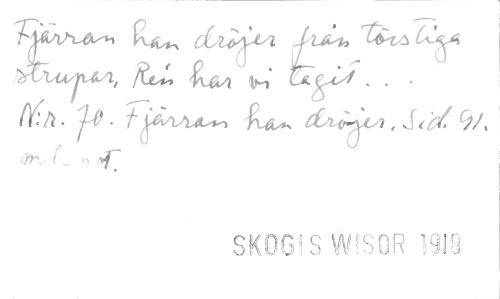 Fjärran han dröjer från törstiga
strupar, Re'n har vi tagit . . .
N:r. 70. Fjärran han dröjer. Sid. 91.
SKOGIS WISOR 1918